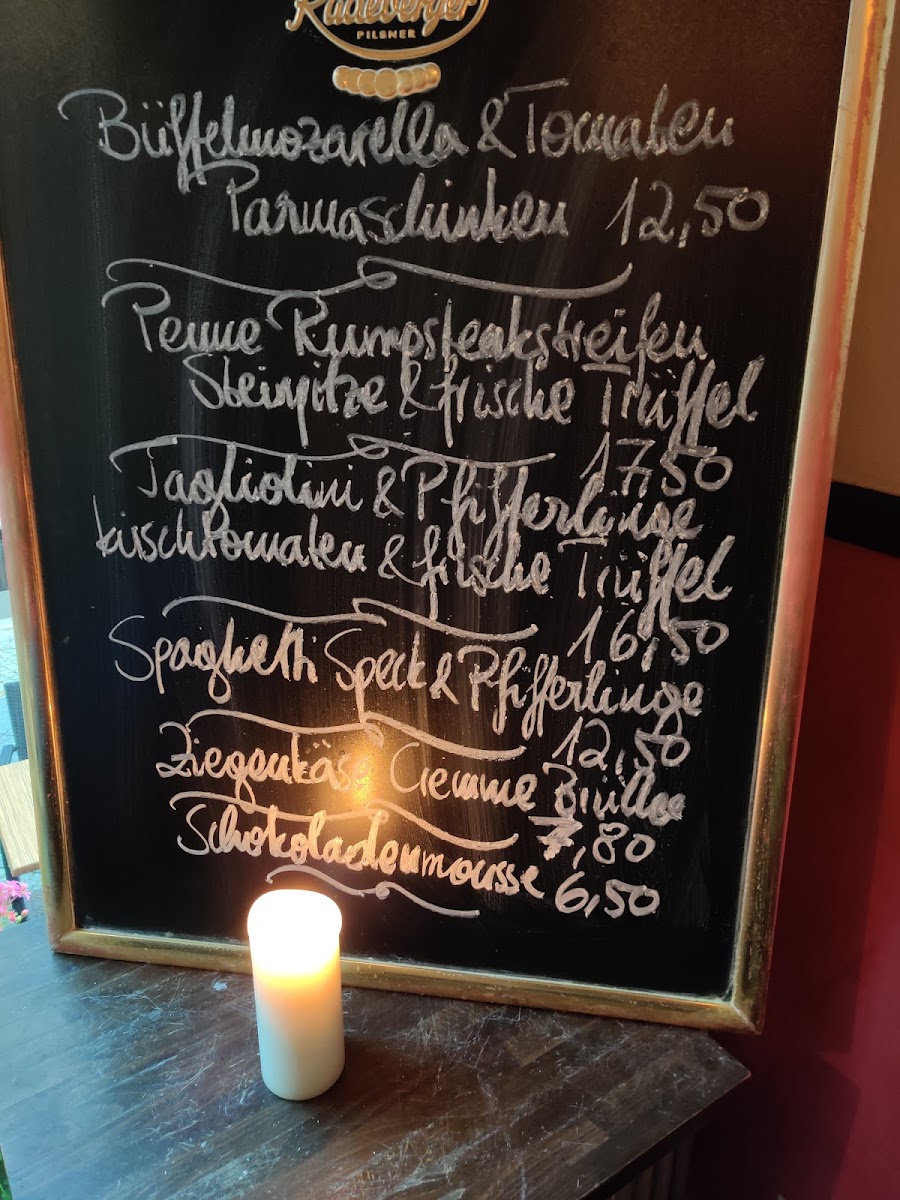 Radeberger
PILSNER
Büffelmozarella & Tomaten
Parmaschinken 12,50
Penne Rumpsteakstreifen
Steinpilze & frische Trüffel
17,50
Tagliolini & Pfifferlinge
kirschtomaten & frische Trüffel
16,50
Spaghetti Speck & Pfifferlinge
12,50
Ziegenkäse Cremme Brullee
7,80
Schokoladenmousse 6,50